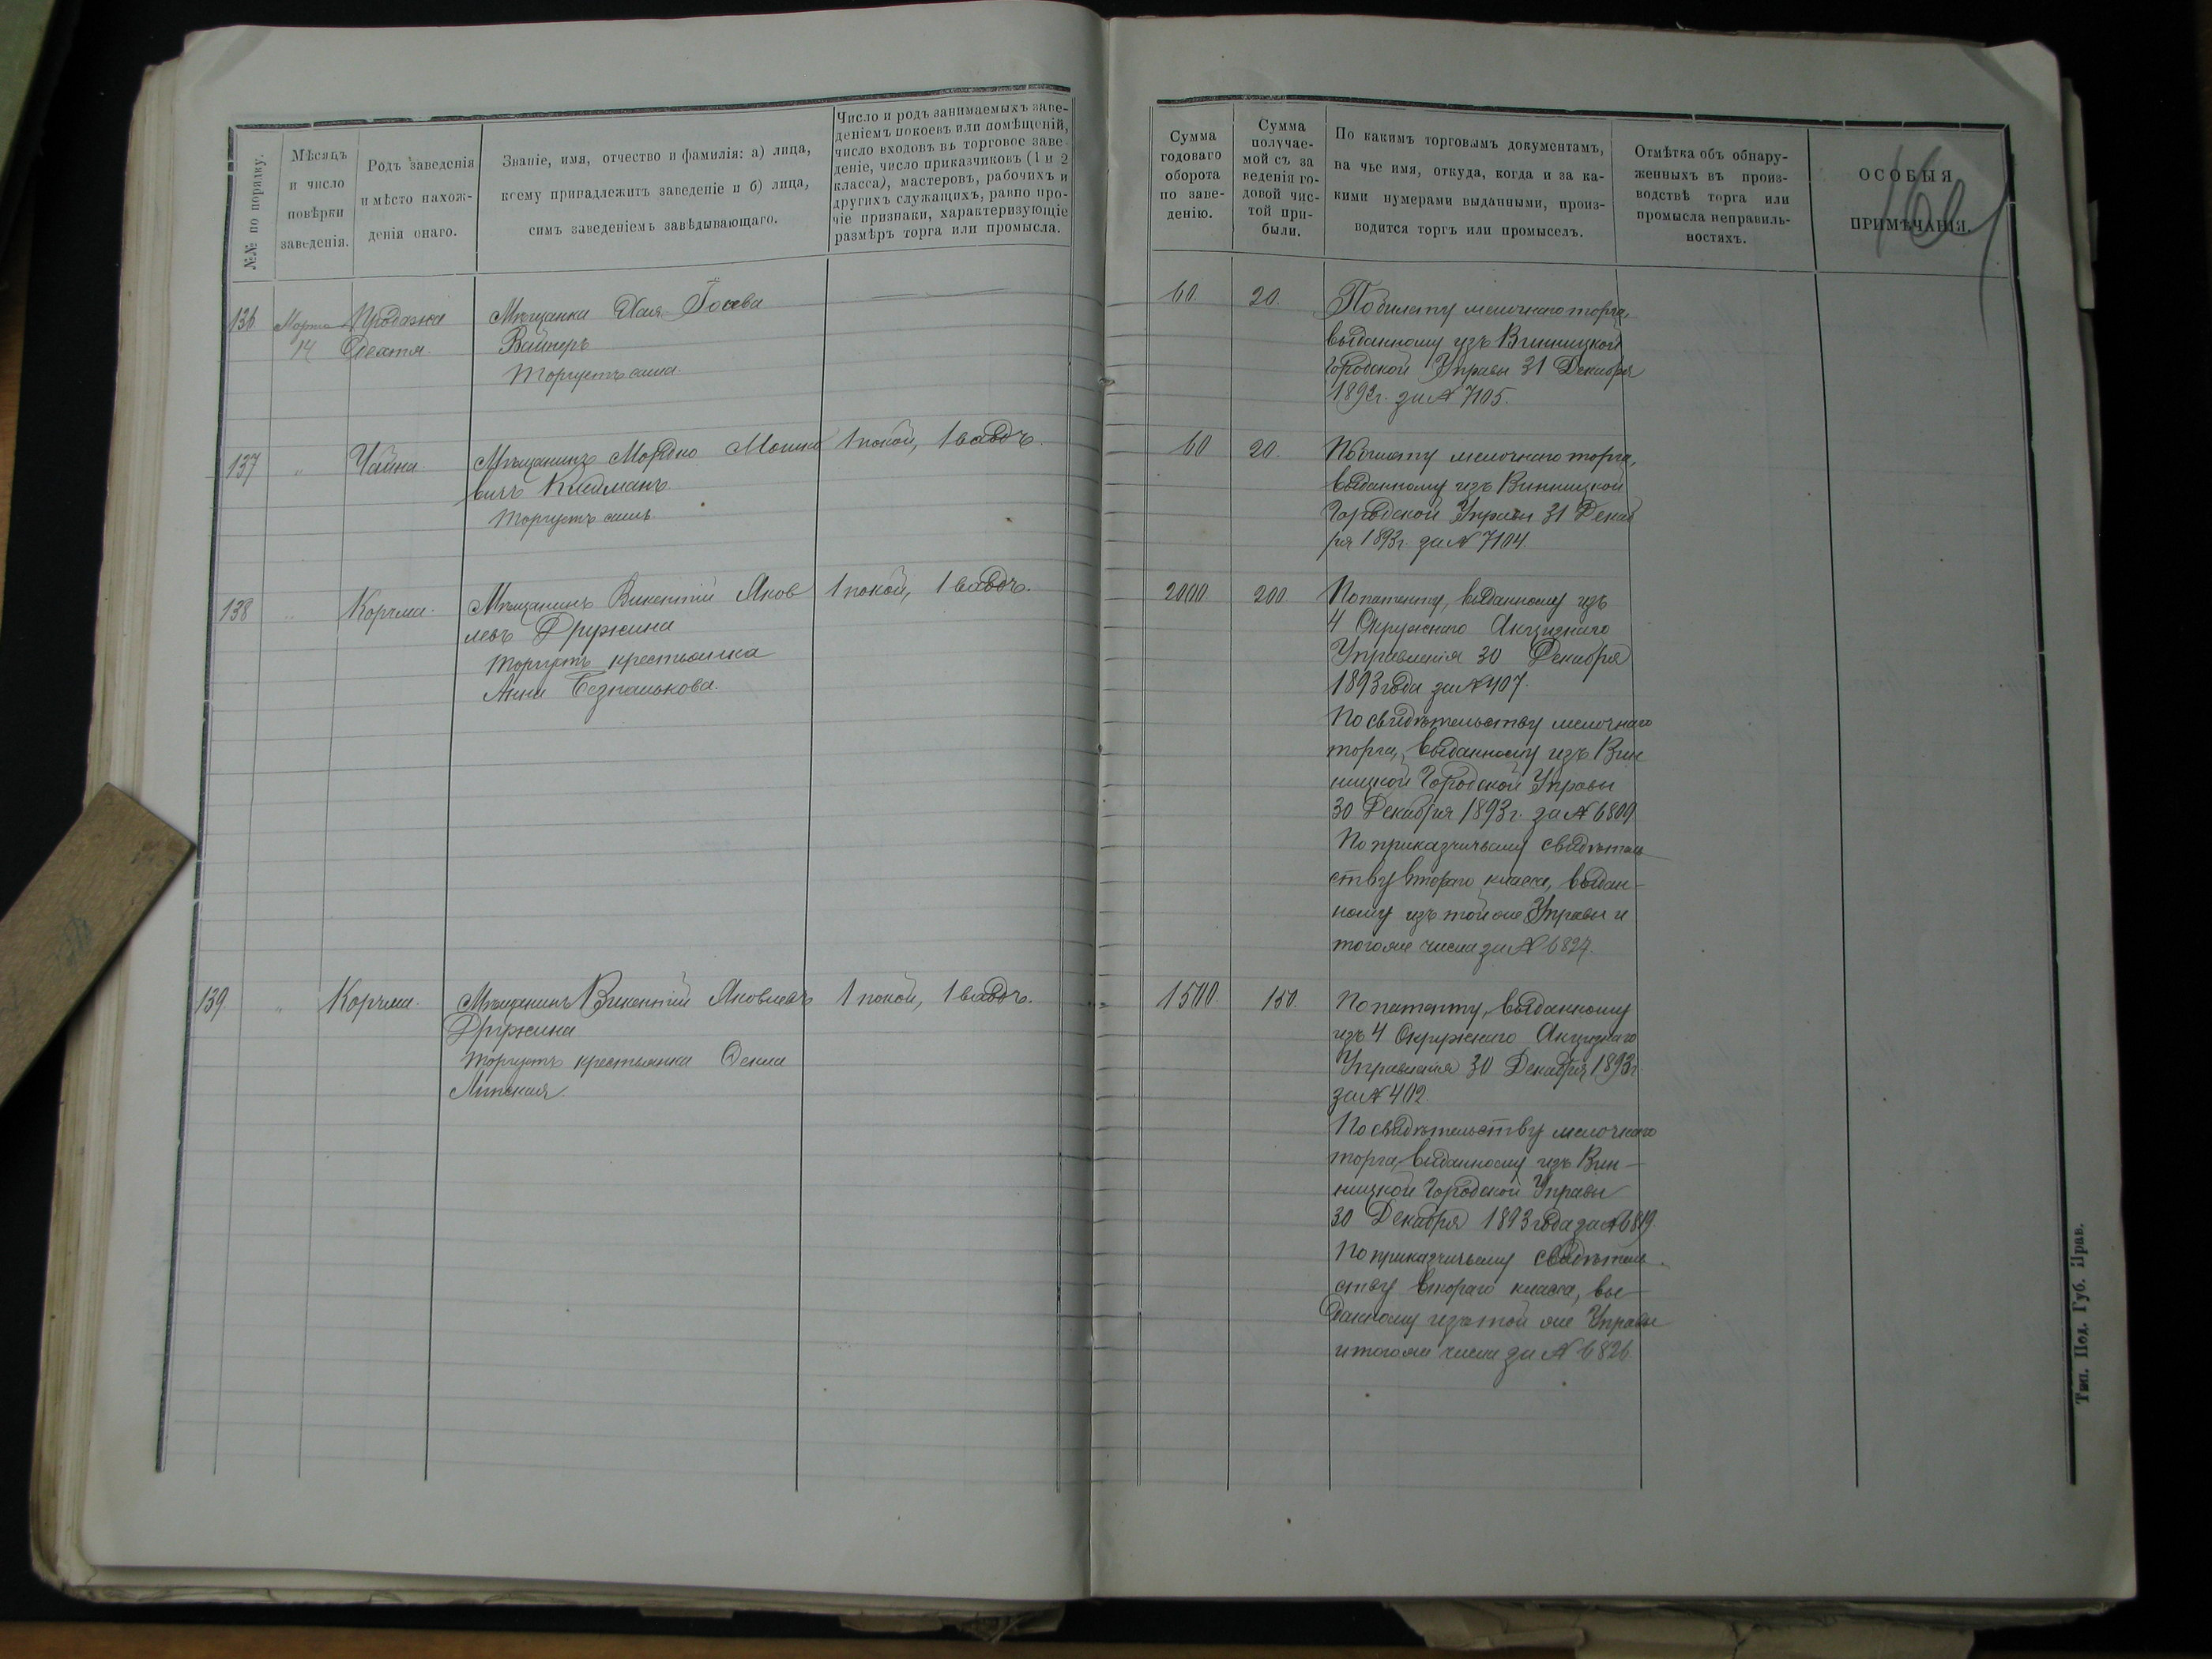 №№ по порядку.
Мѣсяцъ
и число
повѣрки
заведенія.
Родъ заведенія
и мѣсто нахож-
денія онаго.
Званіе, имя, отчество и фамилія: а) лица,
коему принадлежитъ заведеніе и б) лица,
симъ заведеніемъ завѣдывающаго.
Число и родъ занимаемыхъ заве-
деніемъ покоевъ или помѣщеній,
число входовъ въ торговое заве-
деніе, число приказчиковъ (1 и 2
класса), мастеровъ, рабочихъ и
другихъ служащихъ, равно про-
чіе признаки, характеризующіе
размѣръ торга или промысла.
Сумма
годоваго
оборота
по заве-
денію.
Сумма
получае-
мой съ за
веденія го-
довой чис-
той при-
были.
По какимъ торговымъ документамъ,
на чье имя, откуда, когда и за ка-
кими нумерами выданными, произ-
водится торгъ или промыселъ.
Отмѣтка объ обнару-
женныхъ въ произ-
водствѣ торга или
промысла неправиль-
ностяхъ.
ОСОБЫЯ
ПРИМѢЧАНІЯ.
136
Марта
14
Продажа
Дегтя.
Мѣщанка Хая
Вайнеръ
Торгуетъ сама
60
20
По билету мелочнаго торга,
выданному изъ Винницкой
Городской Управы 31 Декабря
1893г. за № 7105.
137
"
Чайна.
Мѣщанинъ Мошко
вичъ
Торгуетъ самъ
1 покой, 1 входъ.
60
20.
По билету мелочнаго торга,
выданному изъ Винницкой
Городской Управы 31 Декаб
ря 1893г. за № 7104.
138
"
Корчма.
Мѣщанинъ Викентій Яков
левъ Дружина
Торгуетъ крестьянка
Анна
1 покой, 1 входъ.
2000
200
По патенту, выданному изъ
4 Окружнаго Акцизнаго
Управленія 30 Декабря
1893 года за № 407.
По свидѣтельству мелочнаго
торга, выданному изъ Вин
ницкой Городской Управы
30 Декабря 1893г. за № 6809
По приказчичьему свидѣтель
ству втораго класса, выдан-
ному изъ той же Управы и
того же числа за № 6827.
139.
"
Корчма.
Мѣщанинъ Викентій Яковлевъ
Дружина
Торгуетъ крестьянка Фекла
Липская
1 покой, 1 входъ.
1500
150.
По патенту, выданному
изъ 4 Окружнаго Акцизнаго
Управленія 30 Декабря 1893г.
за № 402.
По свидѣтельству мелочнаго
торга, выданному изъ Вин-
ницкой Городской Управы
30 Декабря 1893 года за № 6819.
По приказчичьему свидѣтель
ству втораго класса, вы-
данному изъ той же Управы
и того же числа за № 6826
Тип. Под. Губ. Прав.